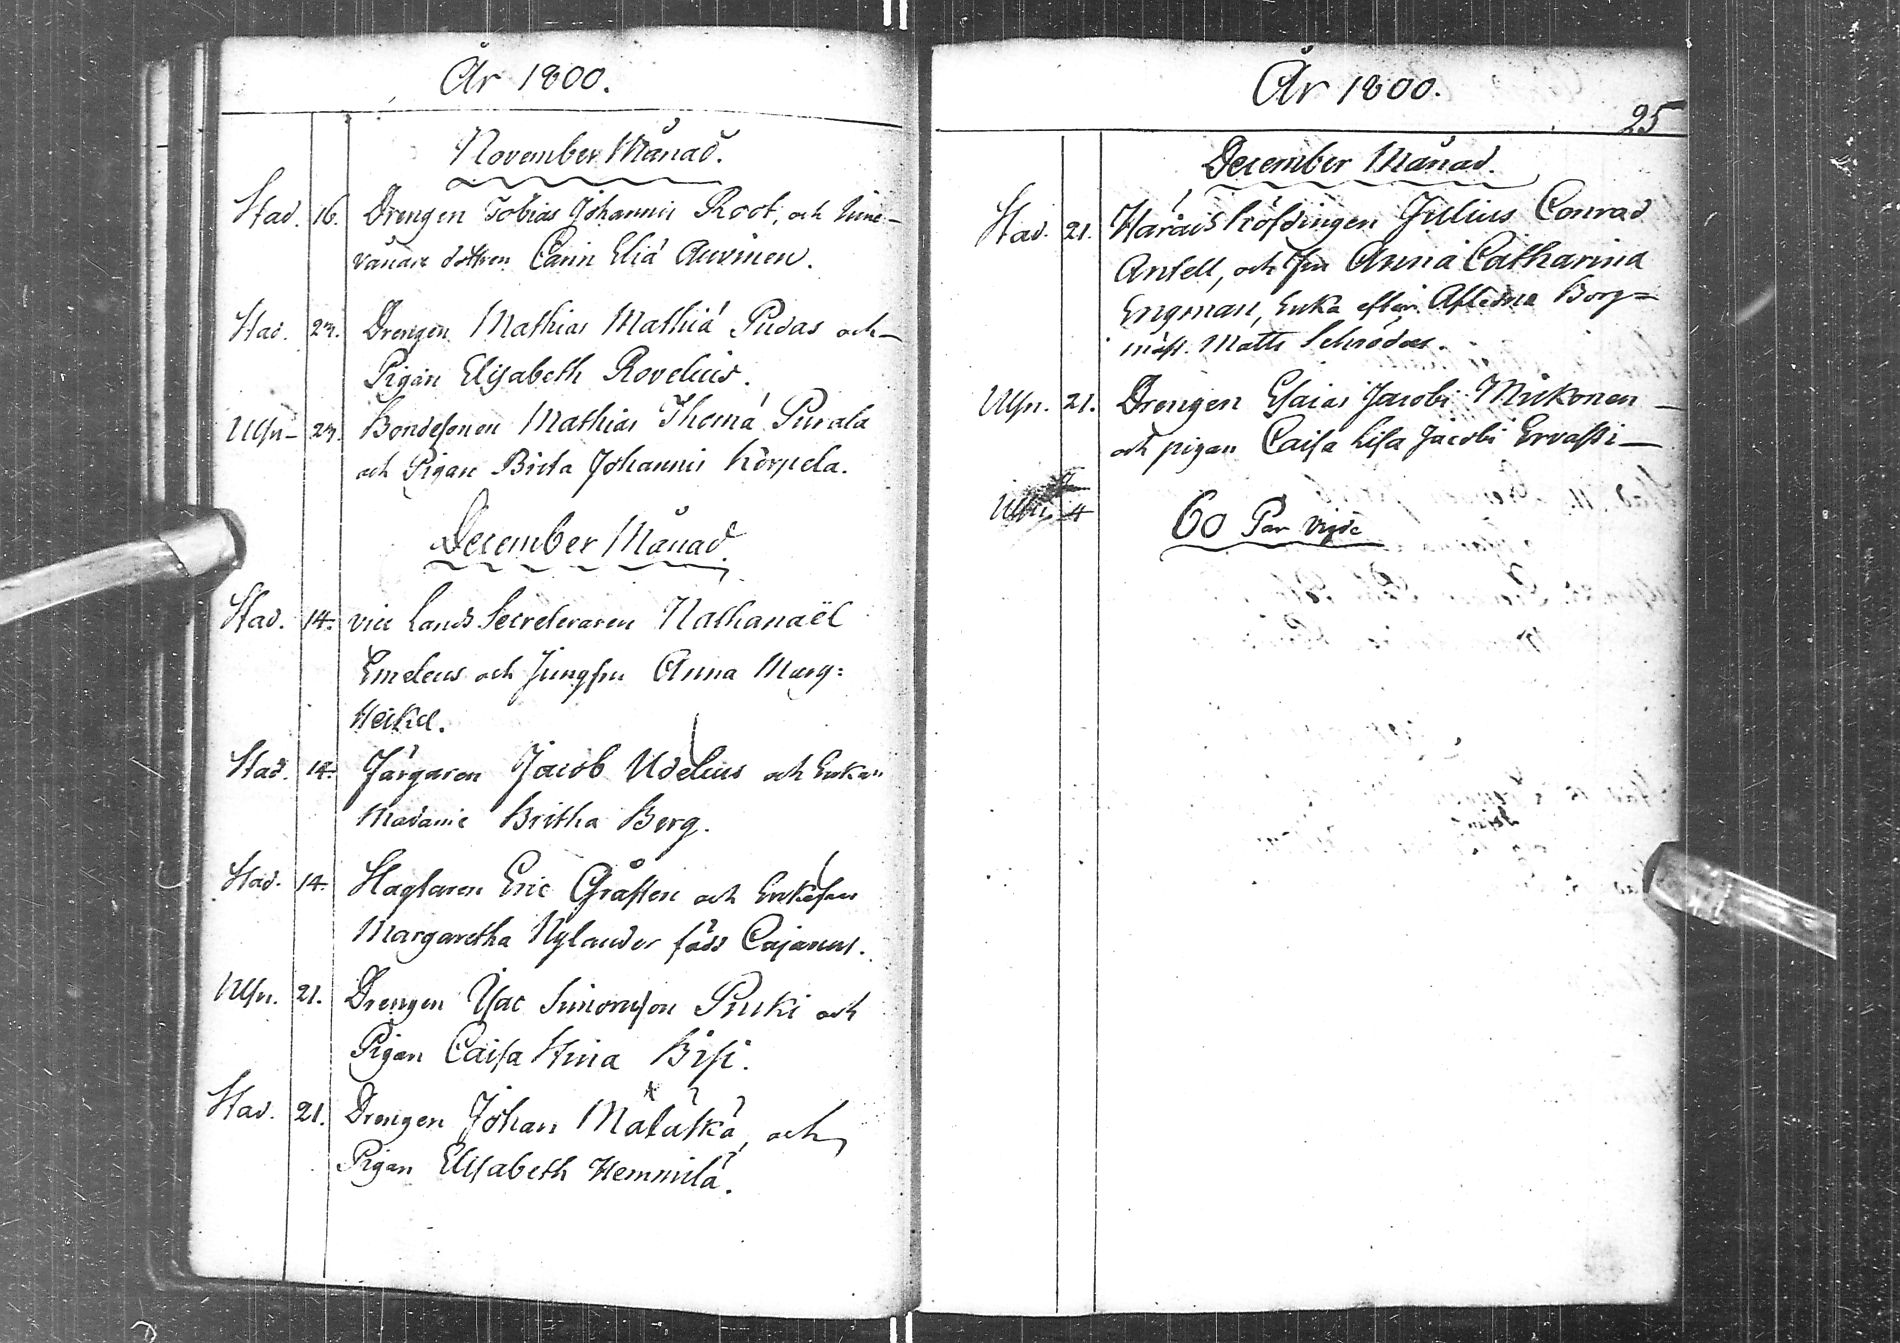 År 1800.
November Månad.
Stad. 16. Drengen Tobias Johannis Root, och Inne-
vånare dottren Carin Eliä Auvinen.
Stad. 23. Drengen Mathias Mathiä Pudas och
Pigan Elisabeth Rovelius.
Ulfr. 23. Bondesonen Mathias Thomä Purala
och Pigan Brita Johannis Körpela.
December Månad.
Stad. 14. vice Lands Secreteraren Nathanaël
Emeleus och Jungfru Anna Marg:
Heikel.
Stad. 14. Färgaren Jacob Udelius och Enkan
Madame Britha Berg.
Stad. 14. Slagtaren Eric Gråsten och Enkefru
Margaretha Nylander född Cajanus.
Ulfr. 21. Drengen Isac Simonsson Pruki och
Pigan Caisa Stina Bisi.
Stad. 21. Drengen Johan Mätäskä, och
Pigan Elisabeth Hemmilä.
År 1800.
25
December Månad.
Stad. 21. Häradshöfdingen Julius Conrad
Antell, och Fru Anna Catharina
Engman, Enka efter Afledne Borg-
mäst. Matts Schröder.
Ulfr. 21. Drengen Esaias Jacobi Mikonen
och pigan Caisa Lisa Jacobi Ervasti
60 Par vigde